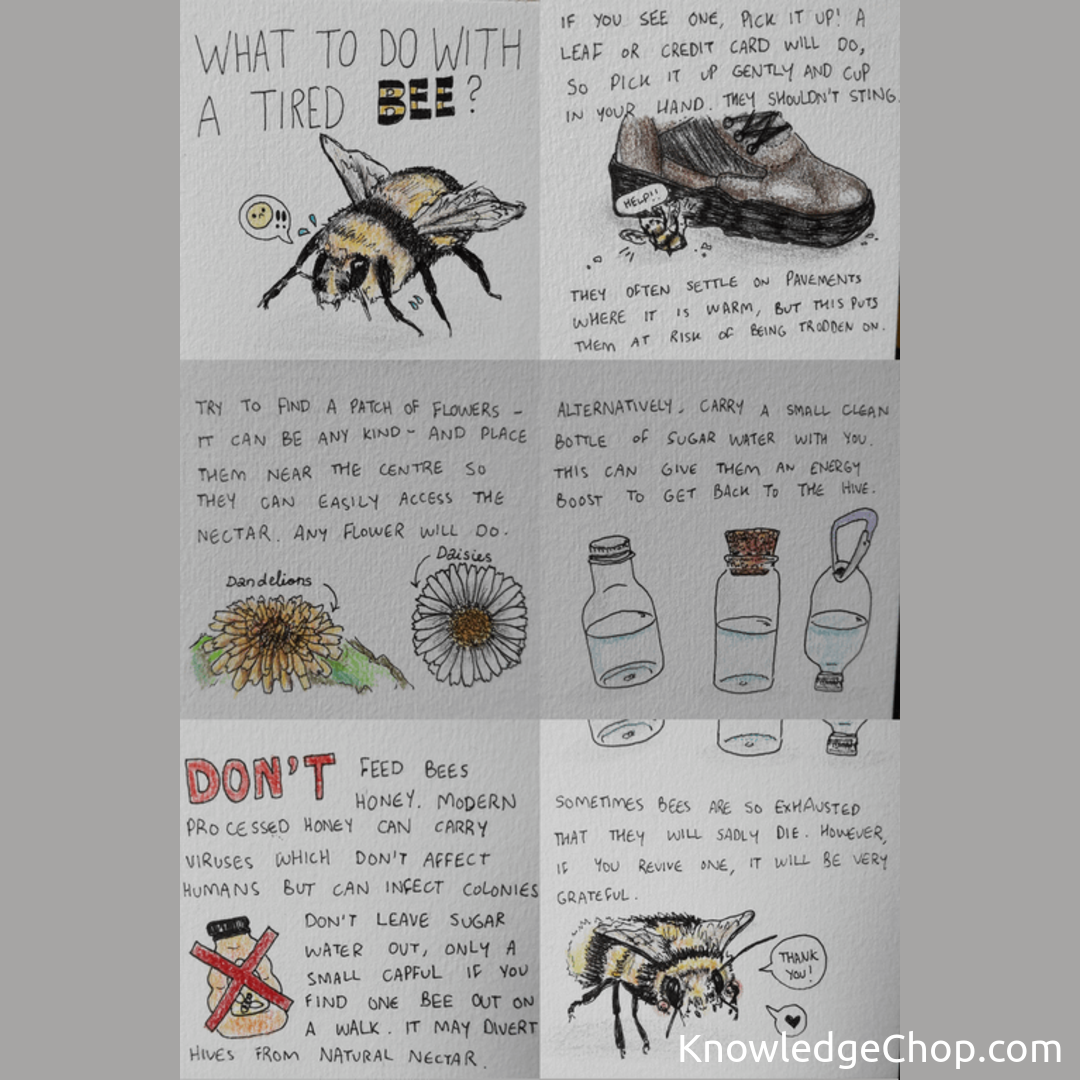 WHAT TO DO WITH
A TIRED BEE?
IF YOU SEE ONE, PICK IT UP! A
LEAF OR CREDIT CARD WILL DO,
SO PICK IT UP GENTLY AND CUP
IN YOUR HAND. THEY SHOULDN'T STING.
HELP!!
THEY OFTEN SETTLE ON PAVEMENTS
WHERE IT IS WARM, BUT THIS PUTS
THEM AT RISK OF BEING TRODDEN ON.
TRY TO FIND A PATCH OF FLOWERS -
IT CAN BE ANY KIND - AND PLACE
THEM NEAR THE CENTRE SO
THEY CAN EASILY ACCESS THE
NECTAR. ANY FLOWER WILL DO.
Daisies
Dandelions
ALTERNATIVELY, CARRY A SMALL CLEAN
BOTTLE OF SUGAR WATER WITH YOU.
THIS CAN GIVE THEM AN ENERGY
BOOST TO GET BACK TO THE HIVE.
DON'T FEED BEES
HONEY. MODERN
PROCESSED HONEY CAN CARRY
VIRUSES WHICH DON'T AFFECT
HUMANS BUT CAN INFECT COLONIES
DON'T LEAVE SUGAR
WATER OUT, ONLY A
SMALL CAPFUL IF YOU
FIND ONE BEE OUT ON
A WALK. IT MAY DIVERT
HIVES FROM NATURAL NECTAR.
SOMETIMES BEES ARE SO EXHAUSTED
THAT THEY WILL SADLY DIE. HOWEVER,
IF YOU REVIVE ONE, IT WILL BE VERY
GRATEFUL.
THANK
YOU!
KnowledgeChop.com